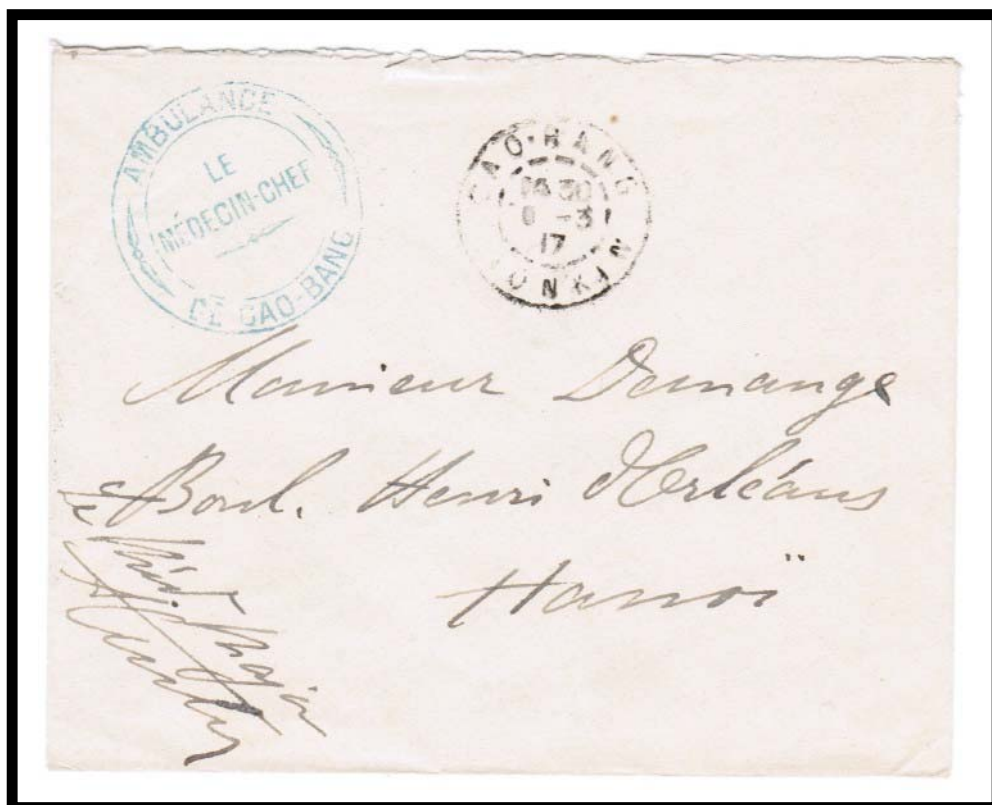 AMBULANCE
LE
MÉDECIN-CHEF
DE CAO-BANG
CAO-BANG
30
-3
17
TONKIN
Monsieur Demange
Boul. Henri d'Orléans
Hanoï
Le
Méd. Major